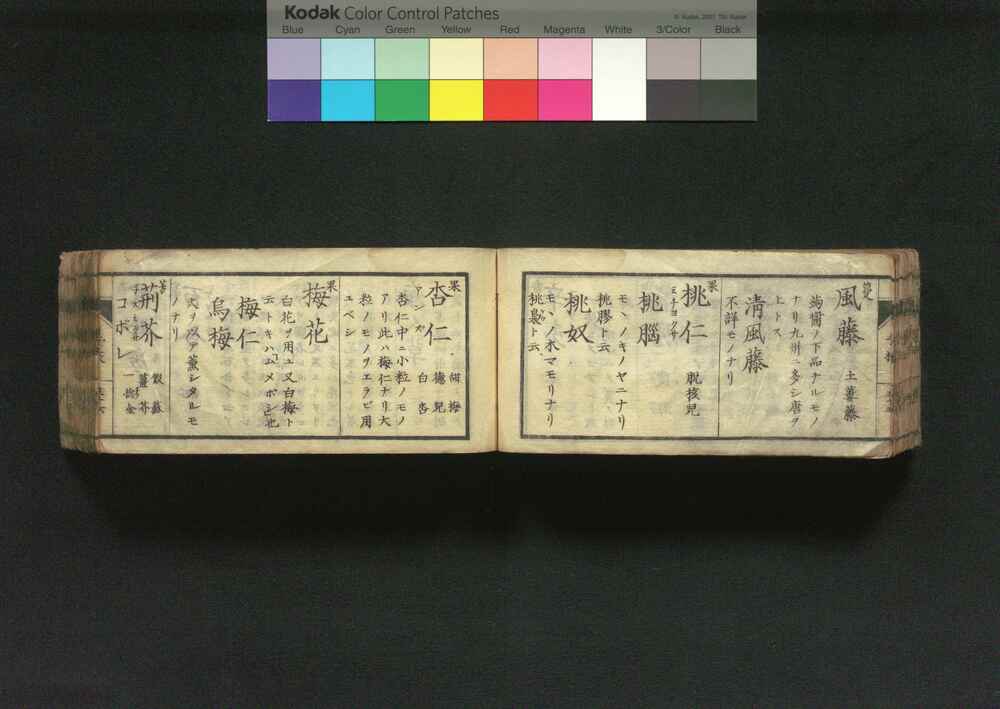 Kodak Color Control Patches
© Kodak, 2007 TM: Kodak
Blue Cyan Green Yellow Red Magenta White 3/Color Black
風藤 土藁藤
鈎藤ノ下品ナルモノ
ナリ九州ニ多シ唐ヲ
上トス
清風藤
不詳モノナリ
果
桃仁 脱核兒
ミキヨクサ
桃腦
モヽノキノヤニナリ
桃膠ト云
桃奴
モヽノ木マモリナリ
桃梟ト云
果
杏仁 甜梅 德兒 白杏
杏仁中ニ小粒ノモノ
アリ此ハ梅仁ナリ大
粒ノモノヲエラビ用
ユベシ
果
梅花
白花ヲ用ユ又白梅ト
云トキハムメボシ也
梅仁
烏梅
火ヲ以テ薫シタルモ
ノナリ
芳
荊芥 假蘇 薑芥
コボレ一